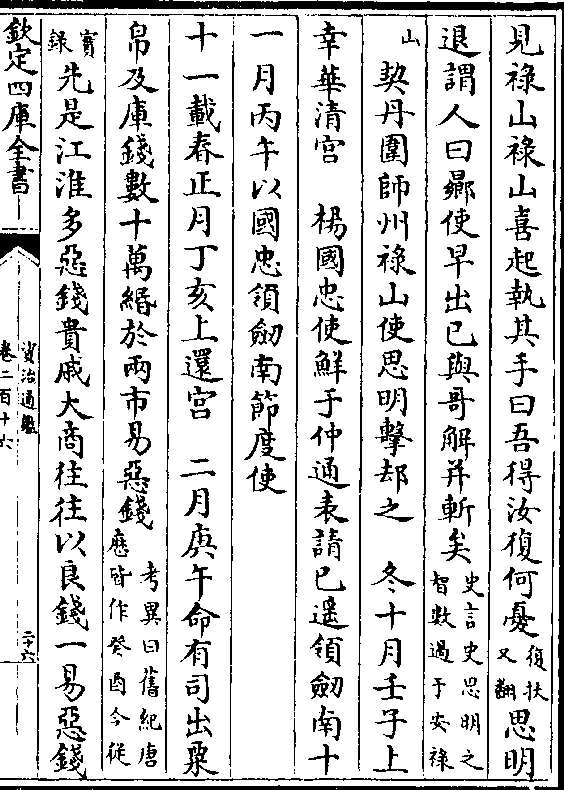 見禄山禄山喜起執其手曰吾得汝復何憂復扶又翻思明
退謂人曰曏使早出已與哥解并斬矣史言史思明之智數過于安禄
山 契丹圍師州禄山使思明擊却之 冬十月壬子上
幸華清宫 楊國忠使鮮于仲通表請己遥領劒南十
一月丙午以國忠領劒南節度使
十一載春正月丁亥上還宫 二月庚午命有司出粟
帛及庫錢數十萬緡於兩市易惡錢考異曰舊紀唐厯皆作癸酉今從
實録先是江淮多惡錢貴戚大商往往以良錢一易惡錢
欽定四庫全書
資治通鑑
卷二百十六
二十六